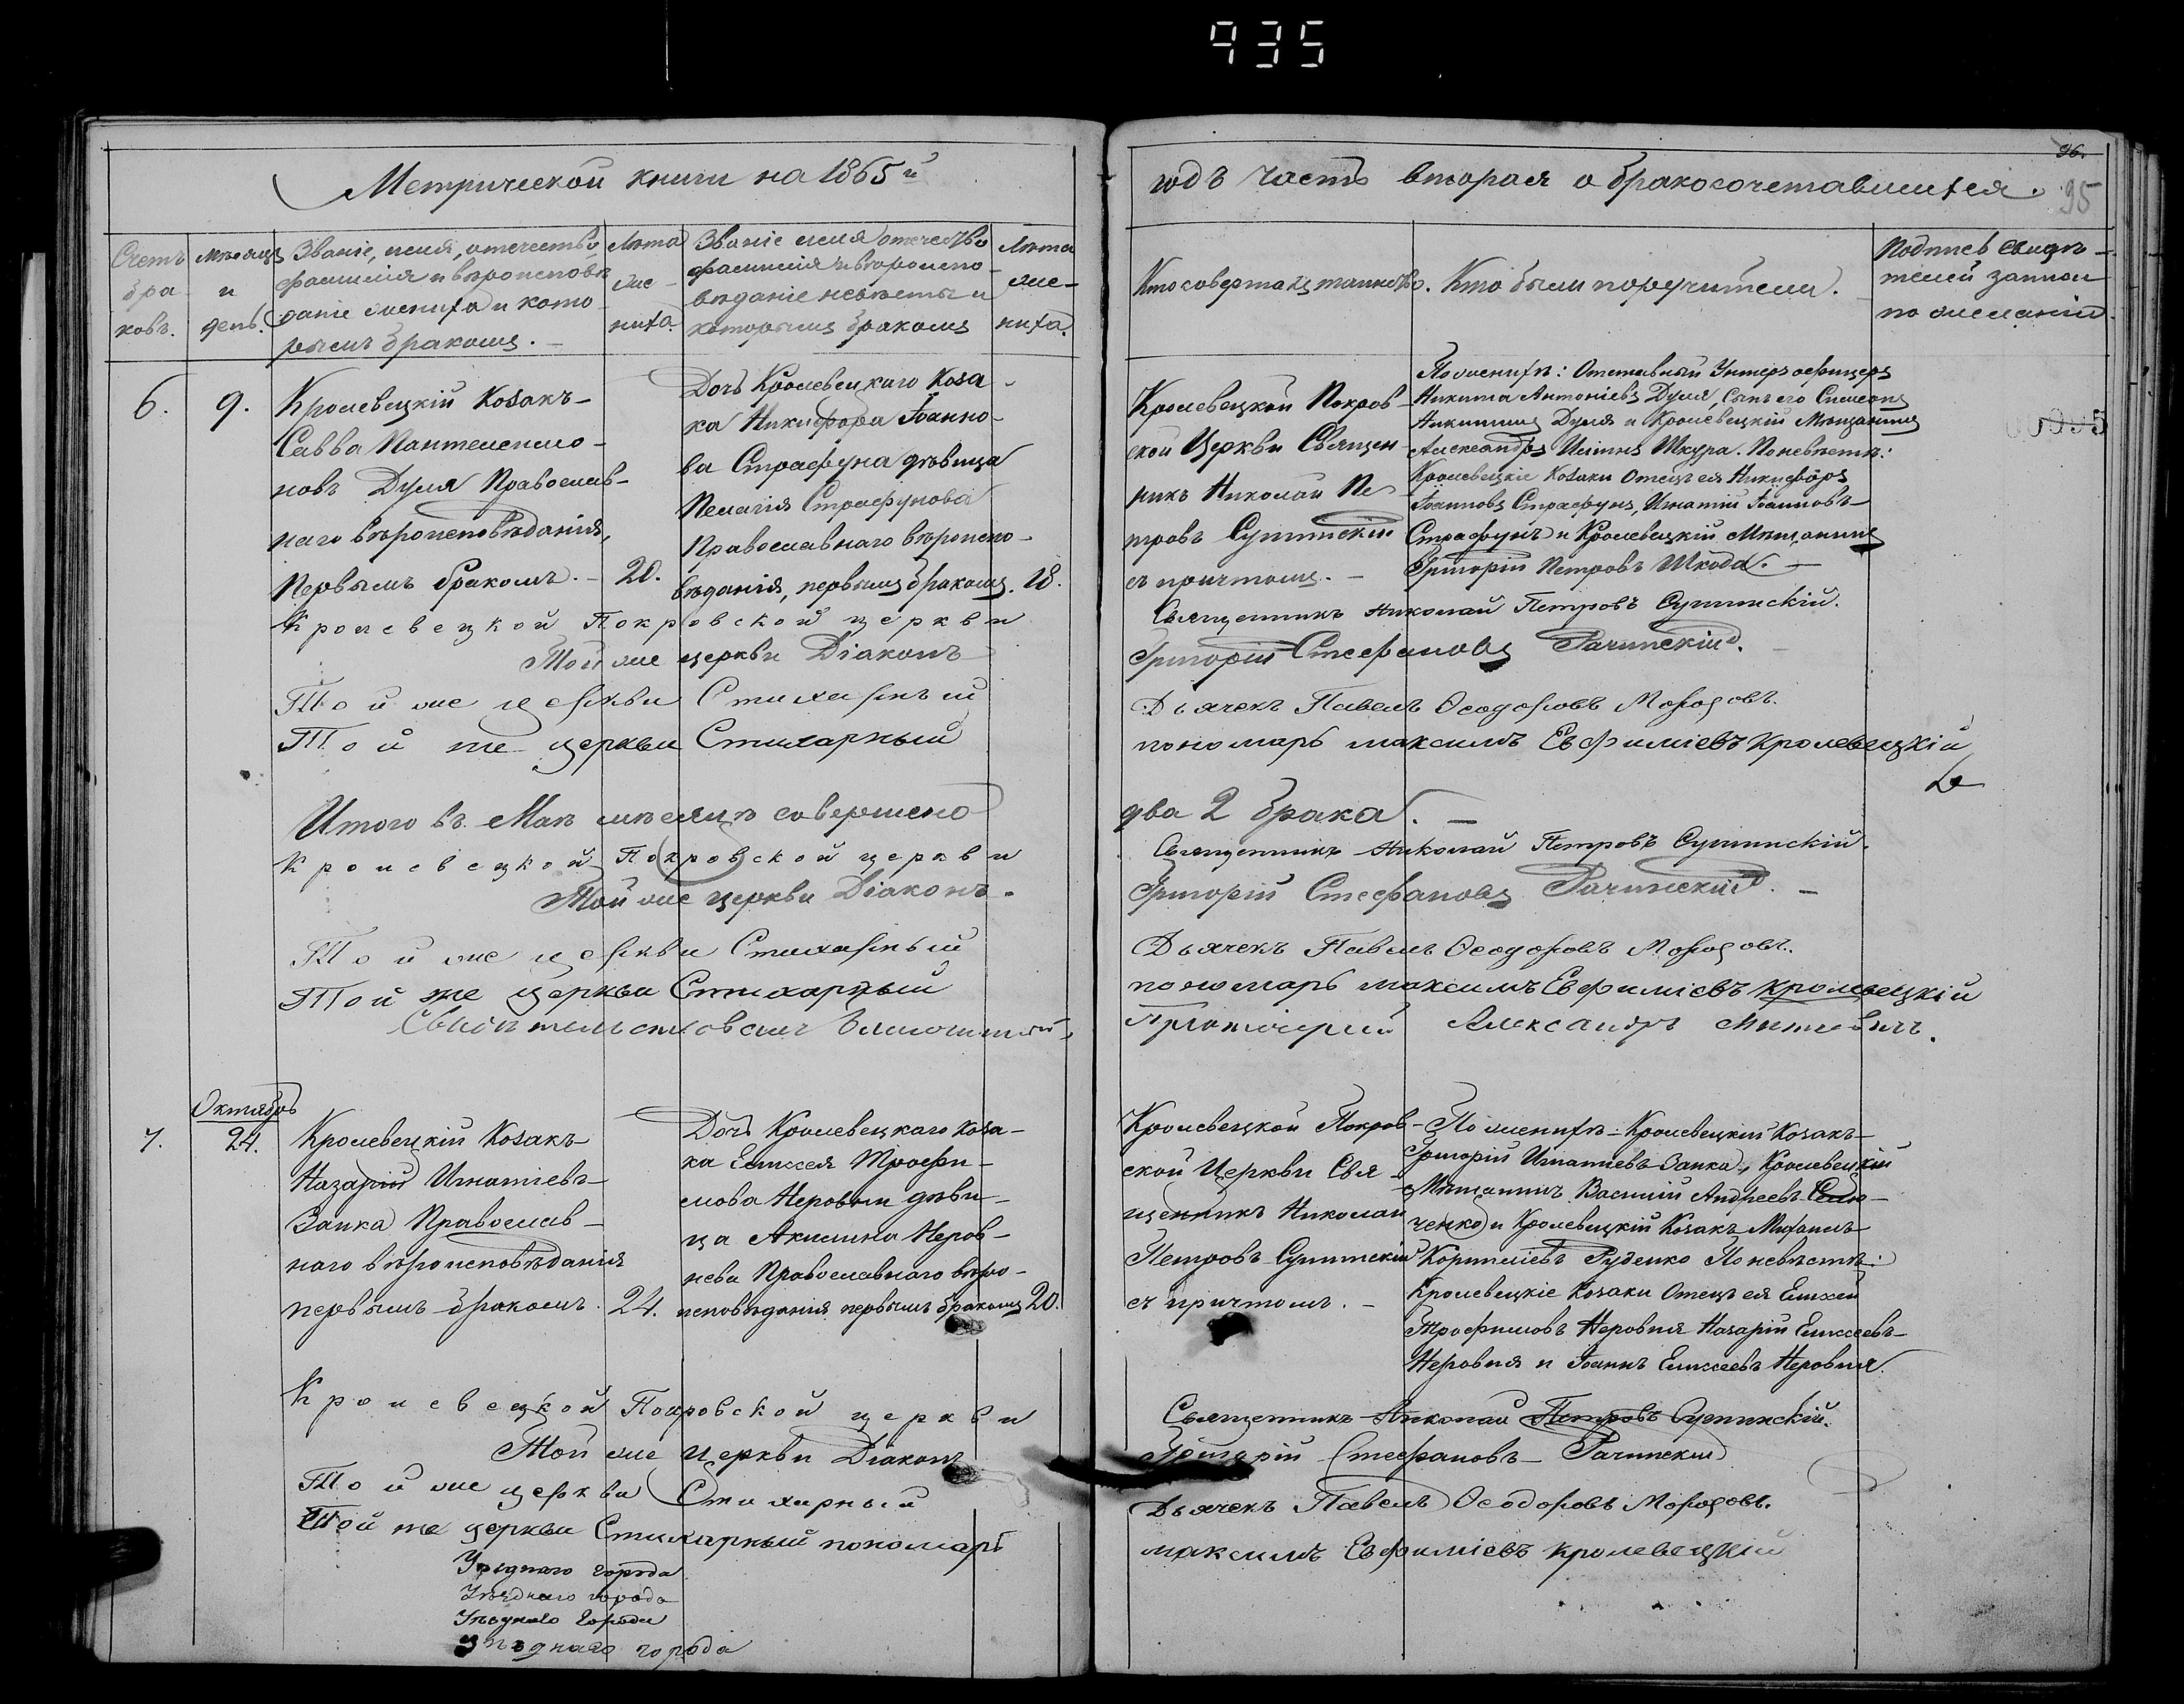 935
96.
95
Метрической книги на 1865й
годъ часть вторая о бракосочетавшихся.
Счетъ браковъ.
Мѣсяцъ и день.
Званіе, имя, отечество,
фамилія и вѣроисповѣ
даніе жениха и кото
рымъ бракомъ.
Лѣта
же-
ниха.
Званіе имя отечество
фамилія и вѣроиспо-
вѣданіе невѣсты и
которымъ бракомъ
Лѣта
же-
ниха.
Кто совершалъ таинство.
Кто были поручители.
Подпись свидѣ-
телей записи
по желанію.
6.
9.
Кролевецкій Козакъ-
Савва Пантелеимо-
новъ Дуля Православ-
наго вѣроисповѣданія,
Первымъ бракомъ.
20.
Дочь Кролевецкаго Коза-
ка Никифора Іоанно-
ва Страфуна дѣвица
Пелагія Страфунова
Православнаго вѣроиспо-
вѣданія, первымъ бракомъ.
18.
Кролевецкой Покров-
ской Церкви Священ-
никъ Николай Пе-
тровъ Сулимскій
съ причтомъ.
По женихѣ: Отставный Унтеръ офицеръ
Никита Антоніевъ Дуля, сынъ его Симеонъ
Никитинъ Дуля и Кролевецкій Мѣщанинъ
Александръ Шкура. По невѣстѣ:
Кролевецкіе Козаки Отецъ ея Никифоръ
Іоанновъ Страфунъ, Игнатій Іоанновъ-
Страфунъ и Кролевецкій Мѣщанинъ
Григорій Петровъ Шкода.
Кролевецкой Покровской церкви Священникъ Николай Петровъ Сулимскій.
Той же церкви Діаконъ Григорій Стефановъ Рачинскій.
Той же церкви Стихарный Дьячекъ Павелъ Ѳеодоровъ Морозовъ.
Той же церкви Стихарный пономарь Максимъ Евфиміевъ Кролевецкій
Итого въ Маѣ мѣсяцѣ совершено два 2 брака.
Кролевецкой Покровской церкви Священникъ Николай Петровъ Сулимскій.
Той же церкви Діаконъ. Григорій Стефановъ Рачинскій.
Той же церкви Стихарный Дьячекъ Павелъ Ѳеодоровъ Морозовъ.
Той же церкви Стихарный пономарь Максимъ Евфиміевъ Кролевецкій
Свидѣтельствовалъ Благочинный, Протоіерей Александръ
Октябрь
7.
24.
Кролевецкій Козакъ-
Назарій Игнатіевъ-
Заика Православ-
наго вѣроисповѣданія
первымъ бракомъ.
24.
Дочь Кролевецкаго Коза-
ка Елисея Трофи-
мова Неровни дѣви-
ца Акилина Неров-
нева Православнаго вѣро-
исповѣданія первымъ бракомъ
20.
Кролевецкой Покров-
ской Церкви Свя-
щенникъ Николай
Петровъ Сулимскій
съ причтомъ.
По женихѣ: Кролевецкій Козакъ-
Григорій Игнатіевъ Заика, Кролевецкій
Мѣщанинъ Василій Андреевъ
ченко и Кролевецкій Козакъ Михаилъ
Корниліевъ Руденко По невѣстѣ:
Кролевецкіе Козаки Отецъ ея Елисей
Трофимовъ Неровня Назарій Елисеевъ-
Неровня и Іоаннъ Елисеевъ Неровня.
Кролевецкой Покровской церкви Священникъ Николай Петровъ Сулимскій.
Той же церкви Діаконъ Григорій Стефановъ Рачинскій
Той же церкви Стихарный Дьячекъ Павелъ Ѳеодоровъ Морозовъ.
Той же церкви Стихарный пономарь Максимъ Евфиміевъ Кролевецкій
Уѣзднаго города
Уѣзднаго города
Уѣзднаго города
Уѣзднаго города